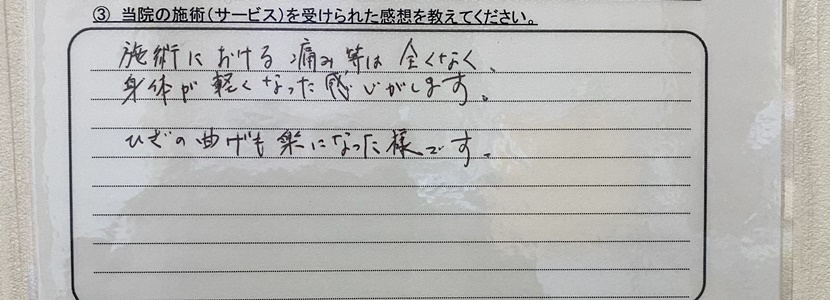 ③ 当院の施術(サービス)を受けられた感想を教えてください。
施術における痛み等は全くなく、
身体が軽くなった感じがします。
ひざの曲げも楽になった様です。